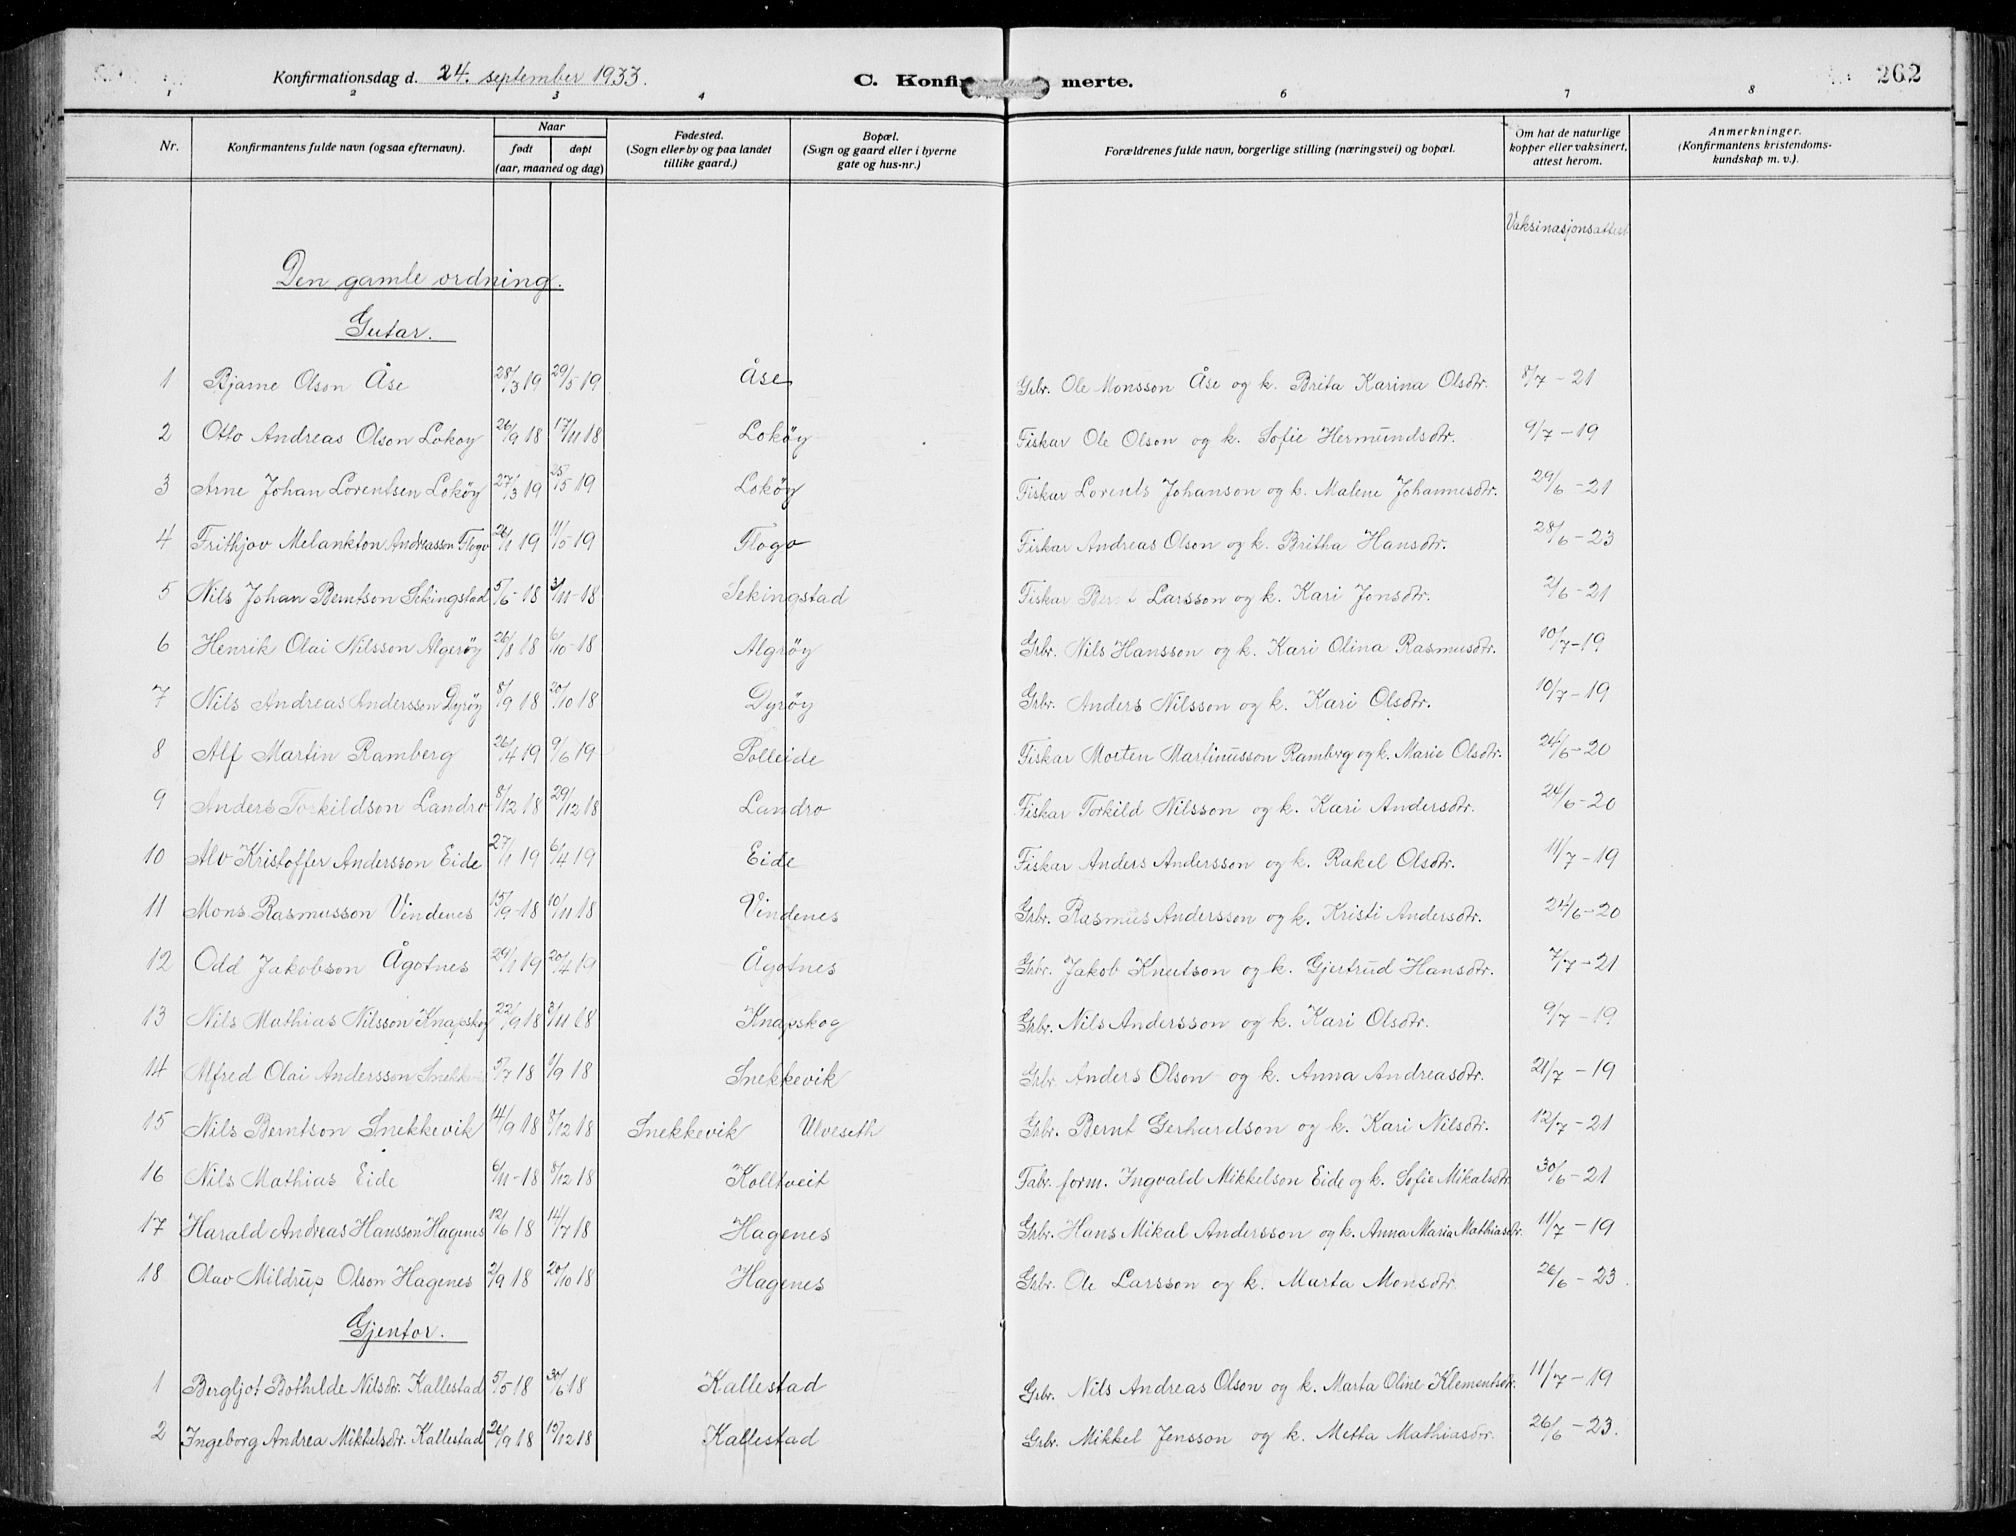 Konfirmationsdag d. 24. september 1933. C. Konfir merte. 262
1 2 3 4 6 7 8
Nr. Konfirmantens fulde navn (ogsaa efternavn). Naar født døpt (aar, maaned og dag) Fødested. (Sogn eller by og paa landet tillike gaard.) Bopæl. (Sogn og gaard eller i byerne gate og hus-nr.) Forældrenes fulde navn, borgerlige stilling (næringsvei) og bopæl. Om hat de naturlige kopper eller vaksinert, attest herom. Anmerkninger. (Konfirmantens kristendomskundskap m. v.).
Vaksinasjonsattest
Den gamle ordning.
Gutar.
1 Bjarne Olson Åse 28/3 19 29/5 19 Åse Grbr. Ole Monsson Åse og k. Brita Karina Olsdtr. 8/7 - 21
2 Otto Andreas Olson Lokøy 26/9 18 17/11 18 Lokøy Fiskar Ole Olson og k. Sofie Hermundsdtr. 9/7 - 19
3 Arne Johan Lorentsen Lokøy 27/3 19 25/5 19 Lokøy Fiskar Lorents Johanson og k. Malene Johannesdtr. 29/6 - 21
4 Frithjov Melankton Andreasson Flogo 26/1 19 11/5 19 Flogo Fiskar Andreas Olson og k. Britha Hansdtr. 28/6 - 23
5 Nils Johan Berntson Sekingstad 5/6 - 18 3/11 - 18 Sekingstad Fiskar Bernt Larsson og k. Kari Jonsdtr. 2/6 - 21
6 Henrik Olai Nilsson Algerøy 26/8 18 6/10 - 18 Algrøy Grbr. Nils Hansson og k. Kari Olina Rasmusdtr. 10/7 - 19
7 Nils Andreas Andersson Dyrøy 8/9 18 20/10 18 Dyrøy Grbr. Anders Nilsson og k. Kari Olsdtr. 10/7 - 19
8 Alf Martin Ramberg 26/4 19 9/6 19 Polleide Fiskar Morten Martinusson Rambrg og k. Marie Olsdtr. 24/6 - 20
9 Anders Torkildson Landro 8/12 18 29/12 18 Landro Fiskar Torkild Nilsson og k. Kari Andersdtr. 24/6 - 20
10 Alv Kristoffer Andersson Eide 27/1 19 6/4 19 Eide Fiskar Anders Andersson og k. Rakel Olsdtr. 11/7 - 19
11 Mons Rasmusson Vindenes 15/9 - 18 10/11 18 Vindenes Grbr. Rasmus Andersson og k. Kristi Andersdtr. 24/6 - 20
12 Odd Jakobson Ågotnes 29/1 19 20/4 19 Ågotnes Grbr. Jakob Knutson og k. Gjertrud Hansdtr. 7/7 - 21
13 Nils Mathias Nilsson Knapskog 22/9 18 3/11 18 Knapskog Grbr. Nils Andersson og k. Kari Olsdtr. 9/7 - 19
14 Alfred Olai Andersson 5/7 18 1/9 18 Snekkevik Grbr. Anders Olson og k. Anna Andreasdtr. 21/7 - 19
15 Nils Berntson Snekkevik 14/9 18 8/12 18 Snekkevik Ulveseth Grbr. Bernt Gerhardson og k. Kari Nilsdtr. 12/7 - 21
16 Nils Mathias Eide 6/11 - 18 8/12 18 Kolltveit Fabr. form. Ingvald Mikkelson Eide og k. Sofie Mikalsdtr 30/6 - 21
17 Harald Andreas Hansson Hagenes 12/6 18 14/7 18 Hagenes Grbr. Hans Mikal Andersson og k. Anna Maria Mathiasdtr. 11/7 - 19
18 Olav Mildrup Olson Hagenes 2/9 18 20/10 18 Hagenes Grbr. Ole Larsson og k. Marta Monsdtr. 26/6 - 23.
Gjentor.
1 Bergljot Bothilde Nilsdtr. Kallestad 5/5 - 18 30/6 18 Kallestad Grbr. Nils Andreas Olson og k. Marta Oline Klementsdtr. 11/7 - 19
2 Ingeborg Andrea Mikkelsdtr. Kallestad 26/9 18 15/12 18 Kallestad Grbr. Mikkel Jensson og k. Metta Mathiasdtr. 26/6 - 23.